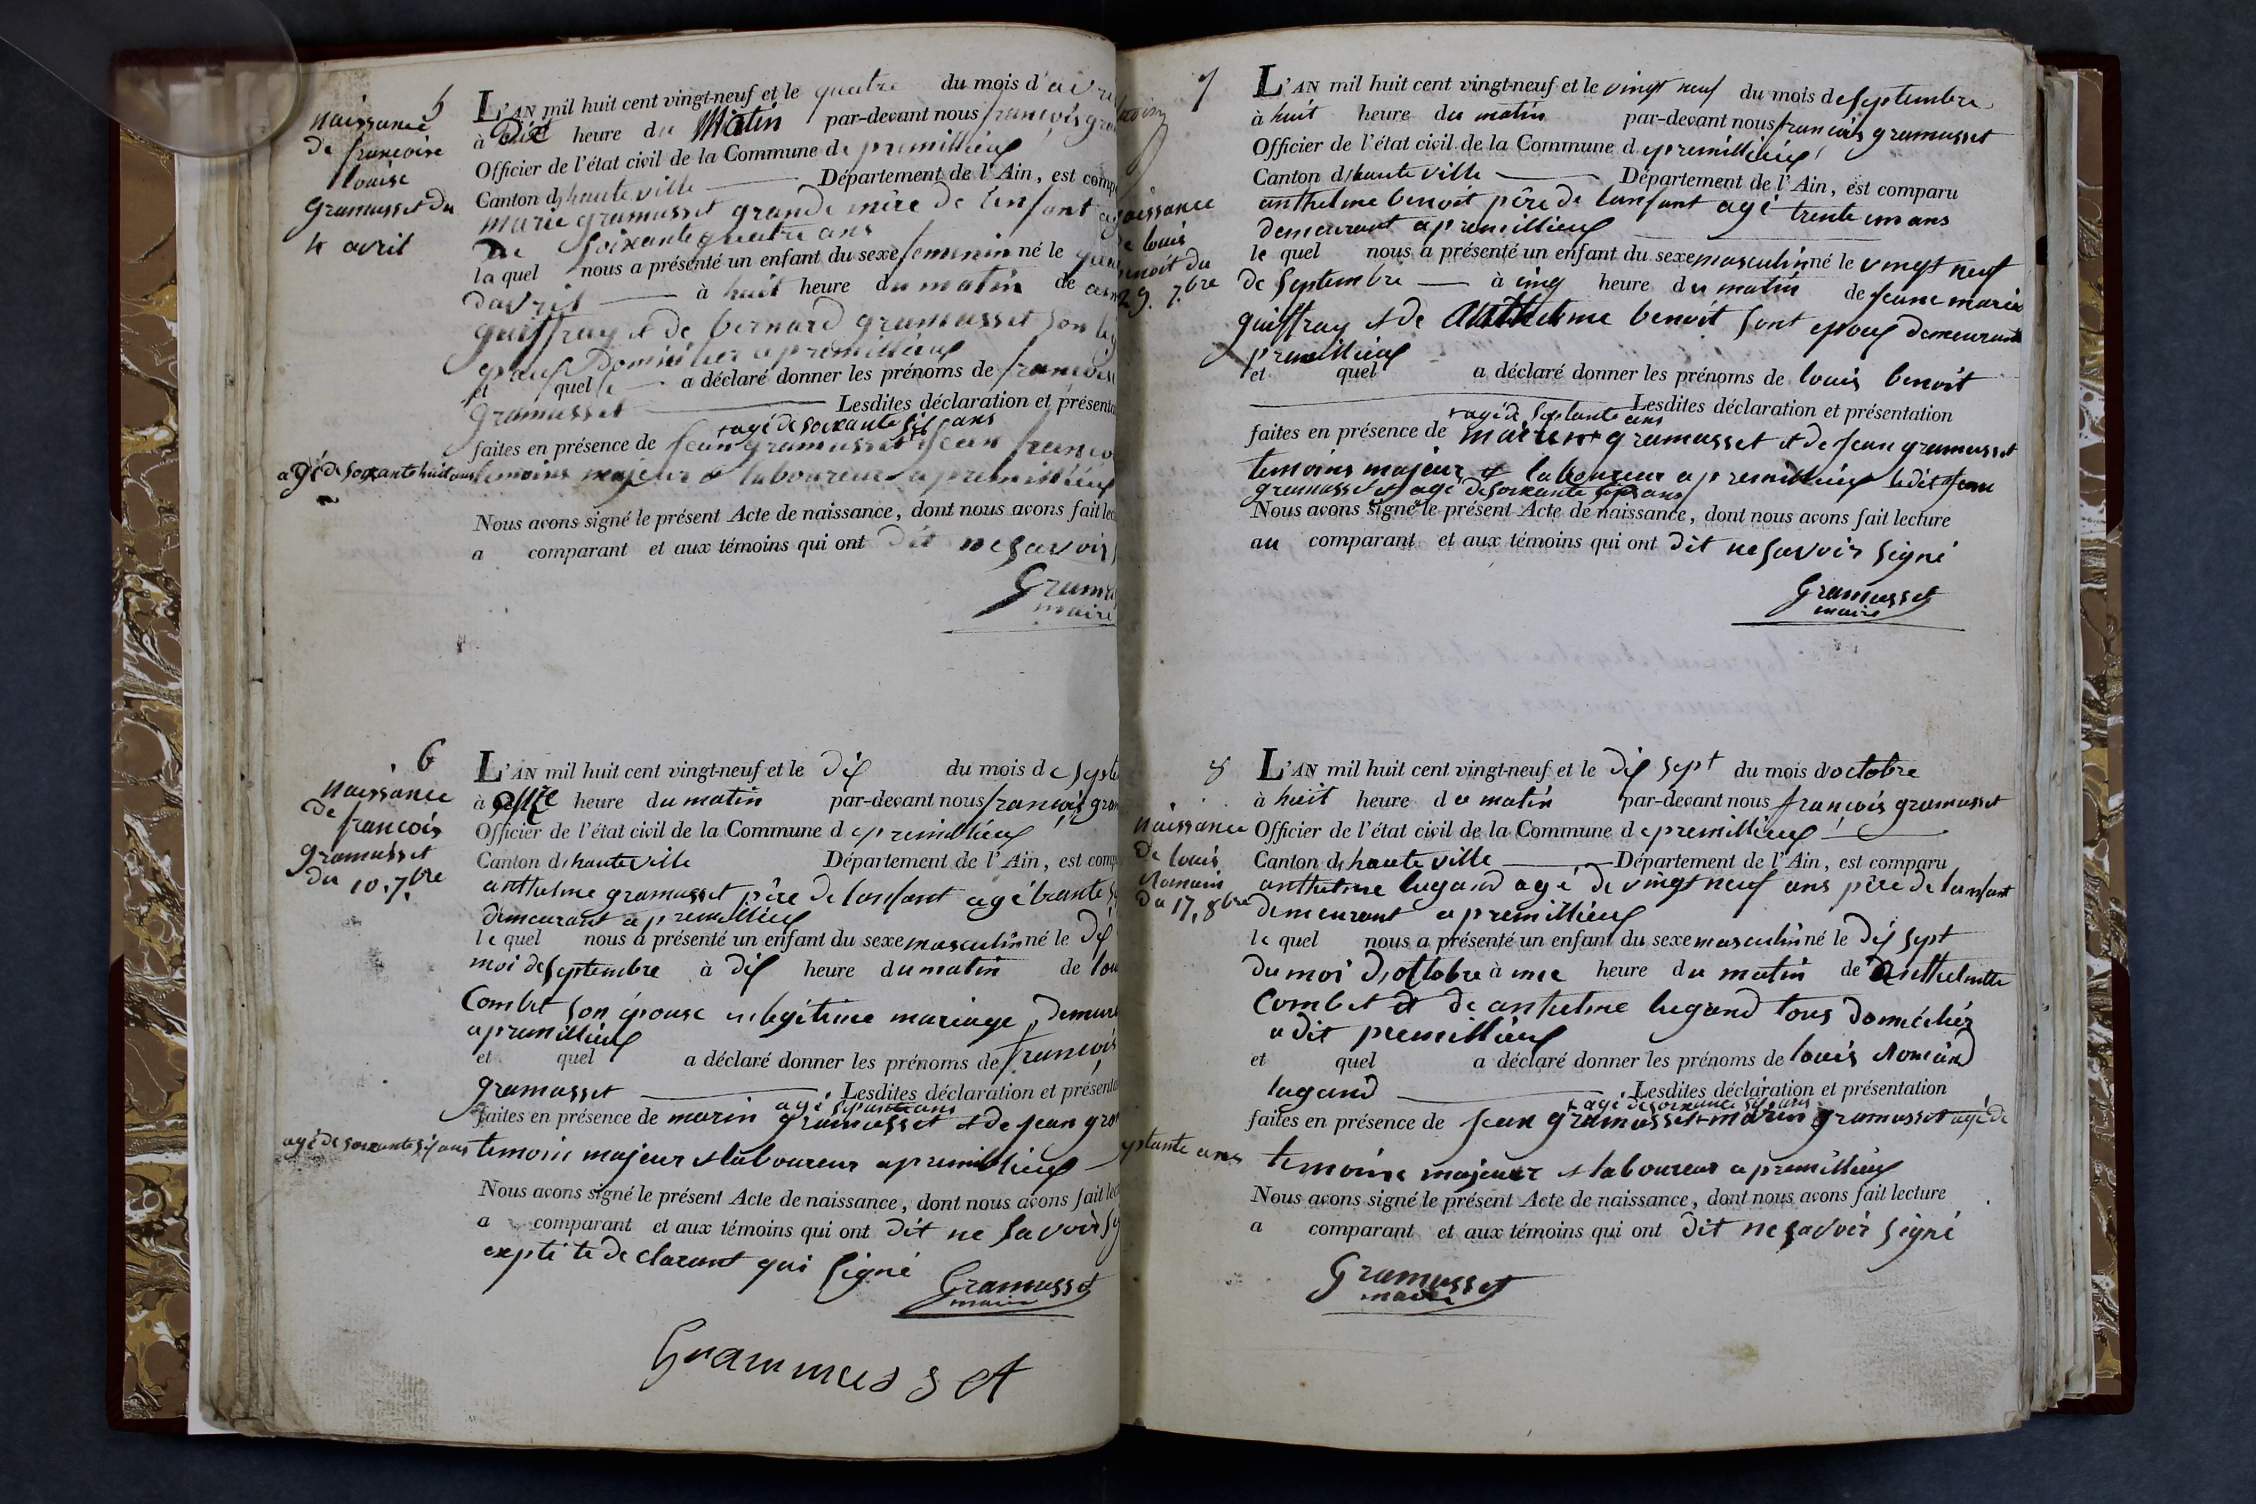 5
naissance
de francoise
louise
gramusset du
4 avril
L'AN mil huit cent vingt-neuf et le quatre du mois d'avri
à dix heure du Matin par-devant nous françois gra
Officier de l'état civil de la Commune de premillieux
Canton d, haute ville Département de l'Ain, est comp
marie gramusset grande mère de l'enfant ag
De Soixante quatre ans
la quel nous a présenté un enfant du sexe femenin né le qua
davril à huit heure du matin de
guiffray et de bernard gramusset son
epoux Domicilier a premillieux
et quelle a déclaré donner les prénoms de francoise
gramusset Lesdites déclaration et présenta
+ agé de soixante six ans
faites en présence de jean gramusset + jean franco
agé de soixante huit ans temoins majeur et laboureur a premillieux
Nous avons signé le présent Acte de naissance, dont nous avons fait lec
a comparant et aux témoins qui ont dit ne savoir
Gramu
maire
6
naissance
de francois
gramusset
du 10. 7bre
L'AN mil huit cent vingt-neuf et le dix du mois de septe
à onze heure du matin par-devant nous françois gram
Officier de l'état civil de la Commune de premillieux
Canton d, haute ville Département de l'Ain, est comp
anthelme gramusset père de lanfant agé trante
demeurant a premillieux
le quel nous a présenté un enfant du sexe masculin né le dix
moi de septembre à dix heure du matin de lou
Combet son épouse en legitime mariage, demeur
a premillieux
et quel a déclaré donner les prénoms de francois
gramusset Lesdites déclaration et présenta
agé sepantte ans
faites en présence de marin gramusset et de jean gra
agé de soixante six ans temoin majeur et laboureur a premillieux
Nous avons signé le présent Acte de naissance, dont nous avons fait lec
a comparant et aux témoins qui ont dit ne savoir sig
expté le declarant qui signé
Gramusset
maire
Grammusset
7
naissance
de louis
benoit du
29. 7.bre
L'AN mil huit cent vingt-neuf et le vingt neuf du mois de septembre
à huit heure du matin par-devant nous françois gramusset
Officier de l'état civil de la Commune de premillieux
Canton d, haute ville Département de l'Ain, est comparu
anthelme benoit père de lanfant agé trente un ans
demeurant a premillieux
le quel nous a présenté un enfant du sexe masculin né le vingt neuf
de septembre à cinq heure du matin de jeane marie
guiffray et de anthelme benoit sont epoux demeurant
a premillieux
et quel a déclaré donner les prénoms de louis benoit
Lesdites déclaration et présentation
+ agé de septante ans
faites en présence de marin + gramusset et de jean gramusset
temoins majeur et laboureur a premillieux ledit jean
gramusset agé de soixante six ans
Nous avons signé le présent Acte de naissance, dont nous avons fait lecture
au comparant et aux témoins qui ont dit ne savoir signé
Gramusset
maire
8
naissance
de louis
Romain
du 17. 8bre
L'AN mil huit cent vingt-neuf et le dix sept du mois d'octobre
à huit heure du matin par-devant nous françois gramusset
Officier de l'état civil de la Commune de premillieux
Canton d, haute ville Département de l'Ain, est comparu
anthelme lugand agé de vingt neuf ans père de lanfant
demeurant a premillieux
le quel nous a présenté un enfant du sexe masculin né le dix sept
du moi d,octobre à une heure du matin de anthelmette
Combet et de anthelme lugand tous domicilier
a dit premillieux
et quel a déclaré donner les prénoms de louis Romain
lugand Lesdites déclaration et présentation
+ agé de soixante six ans
faites en présence de jean gramusset + marin gramusset agé de
septante ans temoins majeur et laboureur a premillieux
Nous avons signé le présent Acte de naissance, dont nous avons fait lecture
a comparant et aux témoins qui ont dit ne savoir signé
Gramusset
maire